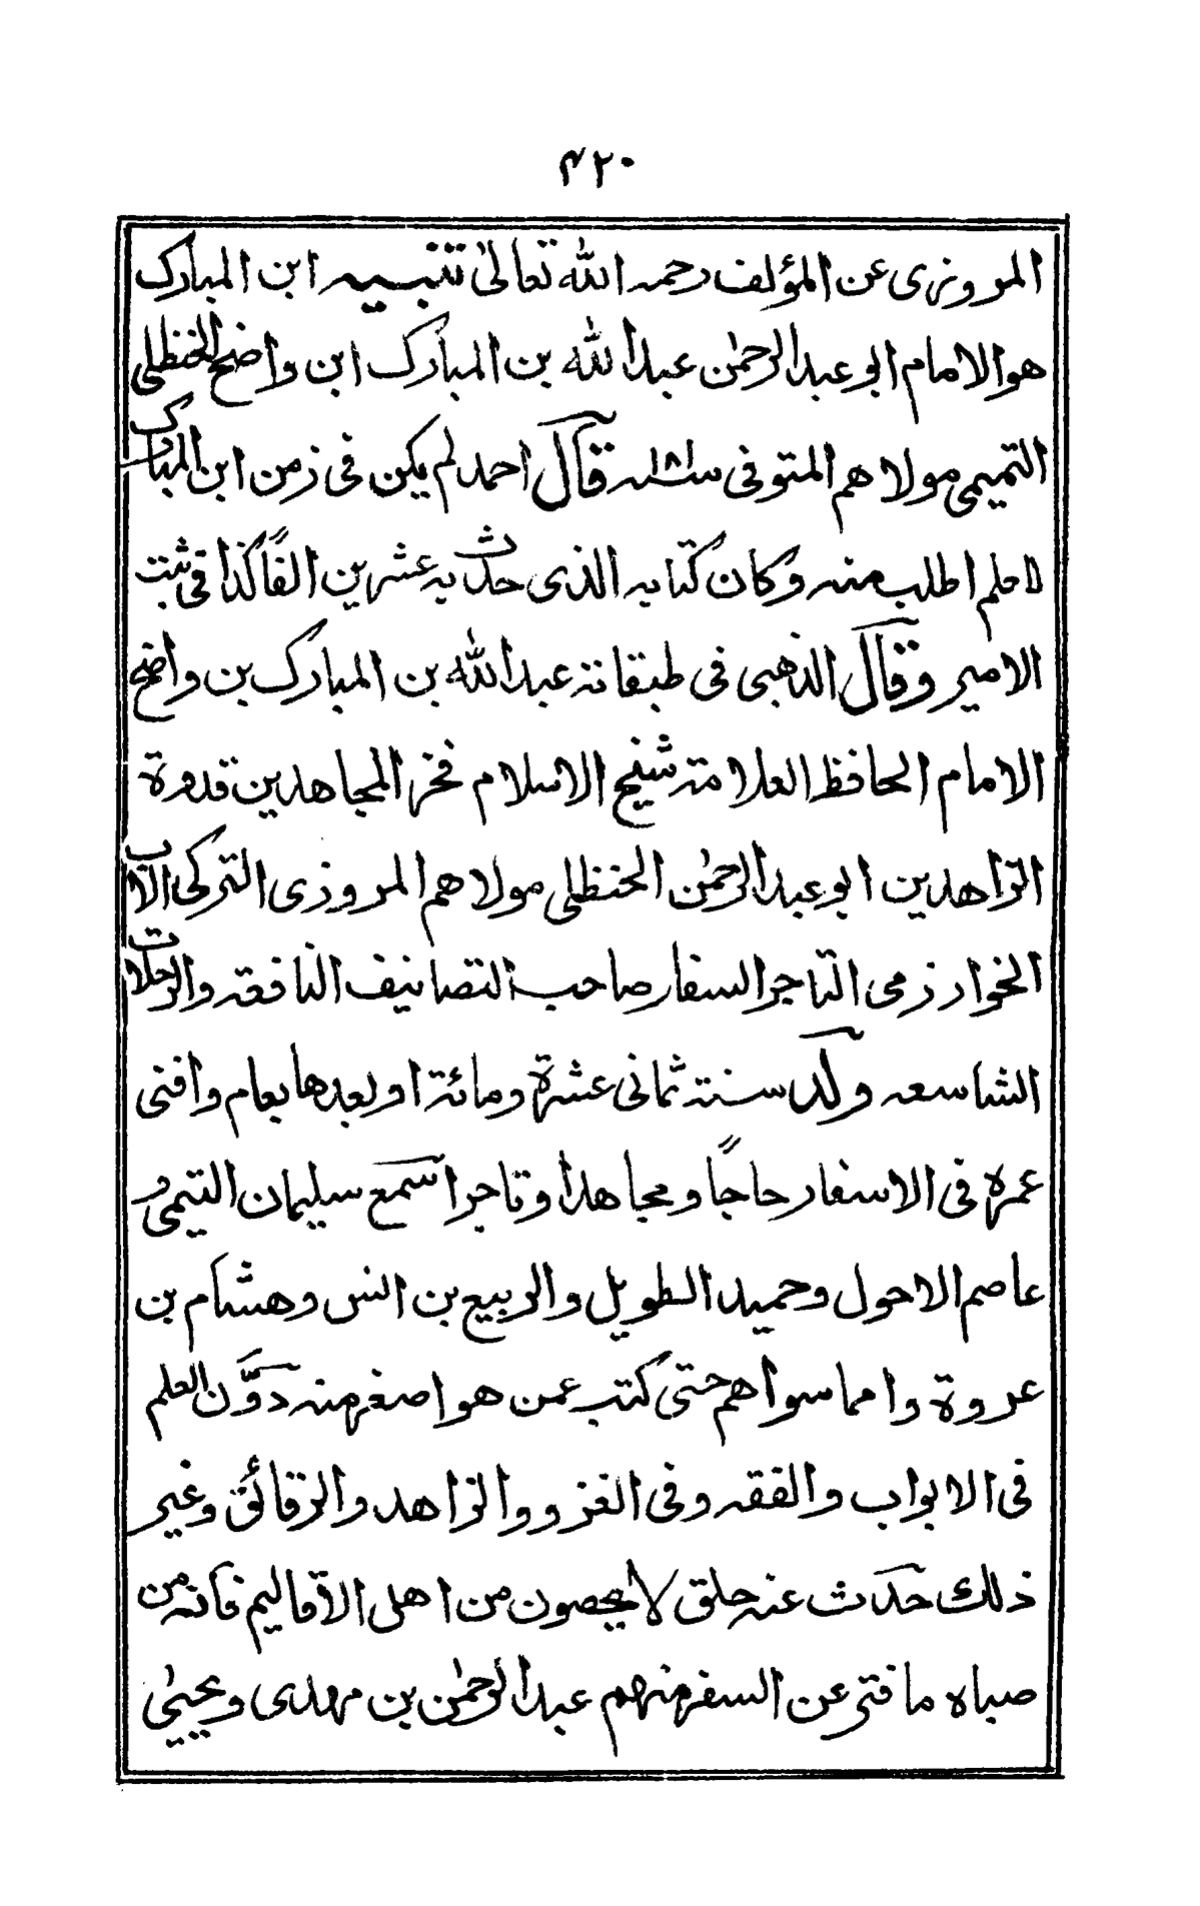 ۴۲۰
المروزی عن المؤلف رحمہ اللہ تعالیٰ تنبیہ ابن المبارک
ھو الامام ابو عبد الرحمٰن عبد اللہ بن المبارک ابن واضح الحنظلی
التمیمی مولاھم المتوفی سنہ قال احمد لم یکن فی زمن ابن المبارک
لاعلم اطلب منہ وکان کتابہ الذی حدث بہ عشرین الفًا کذا فی ثبت
الامیر وقال الذھبی فی طبقاتہ عبد اللہ بن المبارک بن واضح
الامام الحافظ العلامۃ شیخ الاسلام فخر المجاھدین قدوۃ
الزاھدین ابو عبد الرحمٰن الحنظلی مولاھم المروذی الترکی الاب
الخوارزمی التاجر السفار صاحب التصانیف النافعہ والرحلات
الشاسعہ ولد سنۃ ثمانی عشرۃ ومائۃ او بعدھا بعام وافنی
عمرہ فی الاسفار حاجًا ومجاھدا وتاجرا سمع سلیمان التیمی و
عاصم الاحول وحمید الطویل والربیع بن انس وھشام بن
عروۃ واما سواھم حتی کتب عمن ھو اصغر منہ دوَّن العلم
فی الابواب والفقہ وفی الغزو والزاھد والرقائق وغیر
ذلک حدث عنہ خلق لا یحصون من اھل الاقالیم فانہ من
صباہ ما فتر عن السفر منھم عبد الرحمٰن بن مھدی ویحییٰ